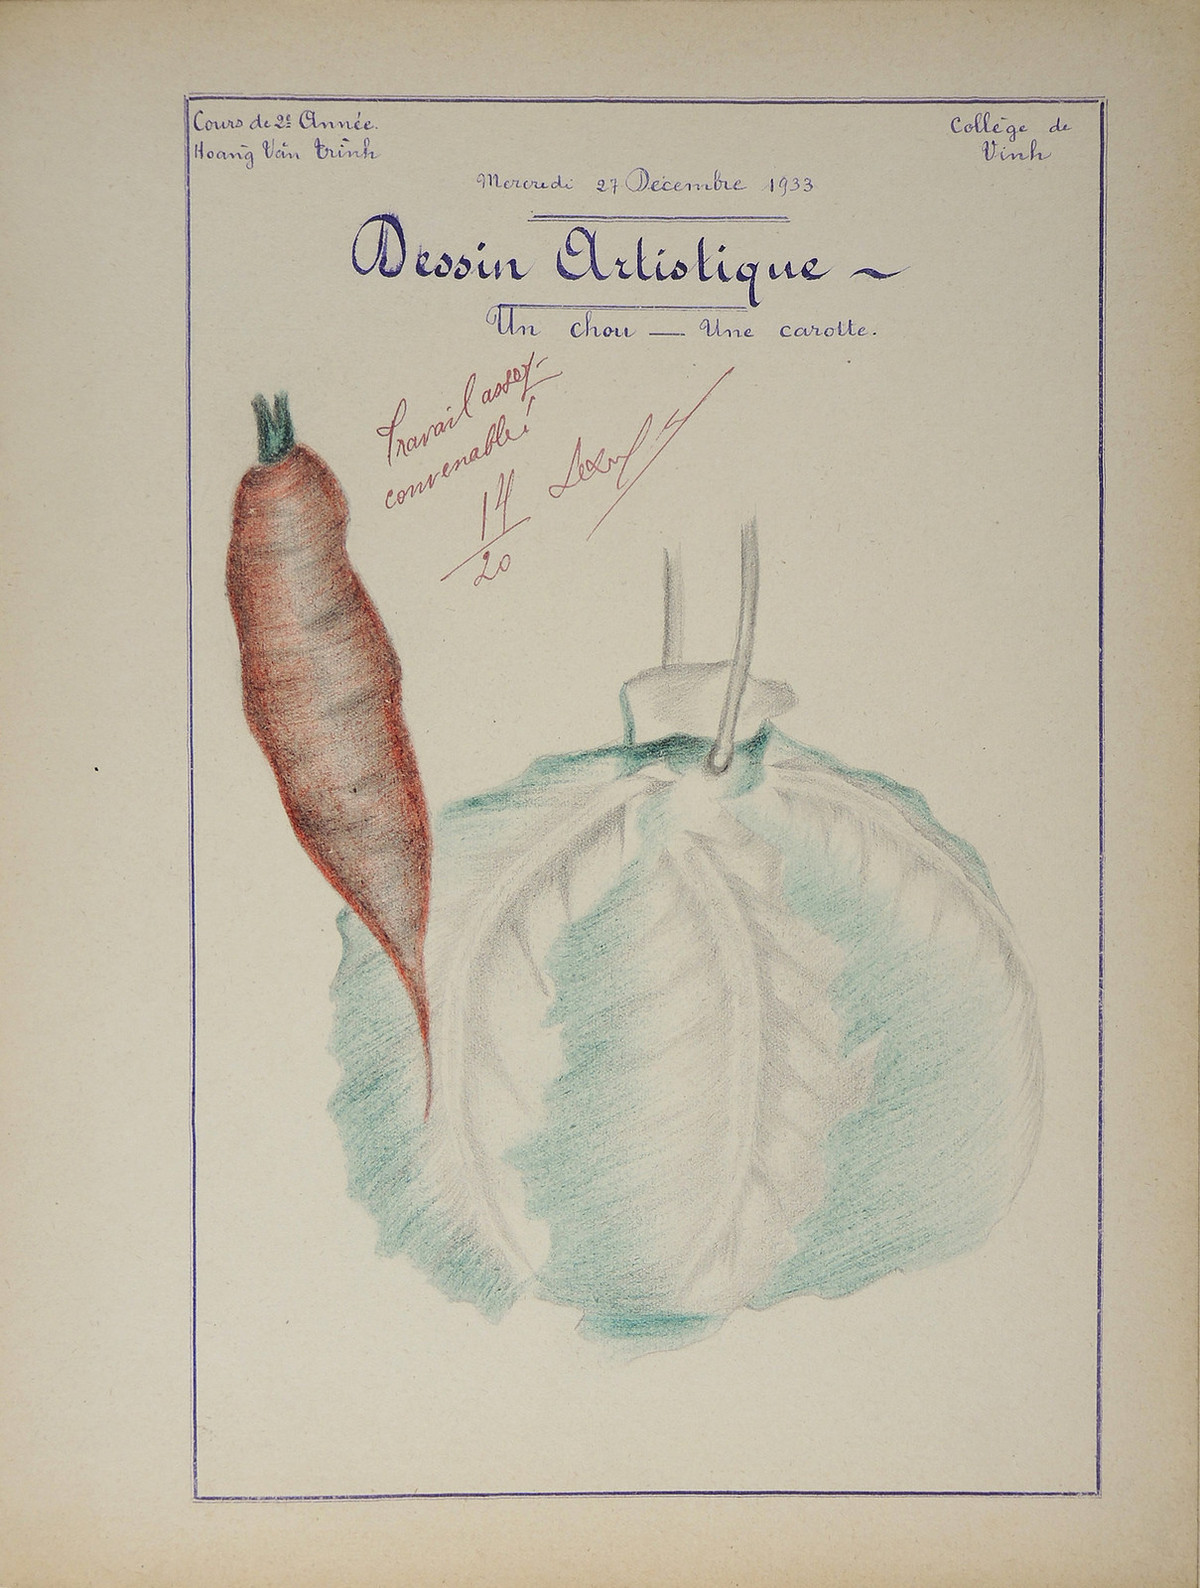 Cours de 2e Année.
Hoang Van Trinh
Collège de
Vinh
Mercredi 27 Décembre 1933
Dessin Artistique ~
Un chou — Une carotte.
Travail assez
convenable!
14
20